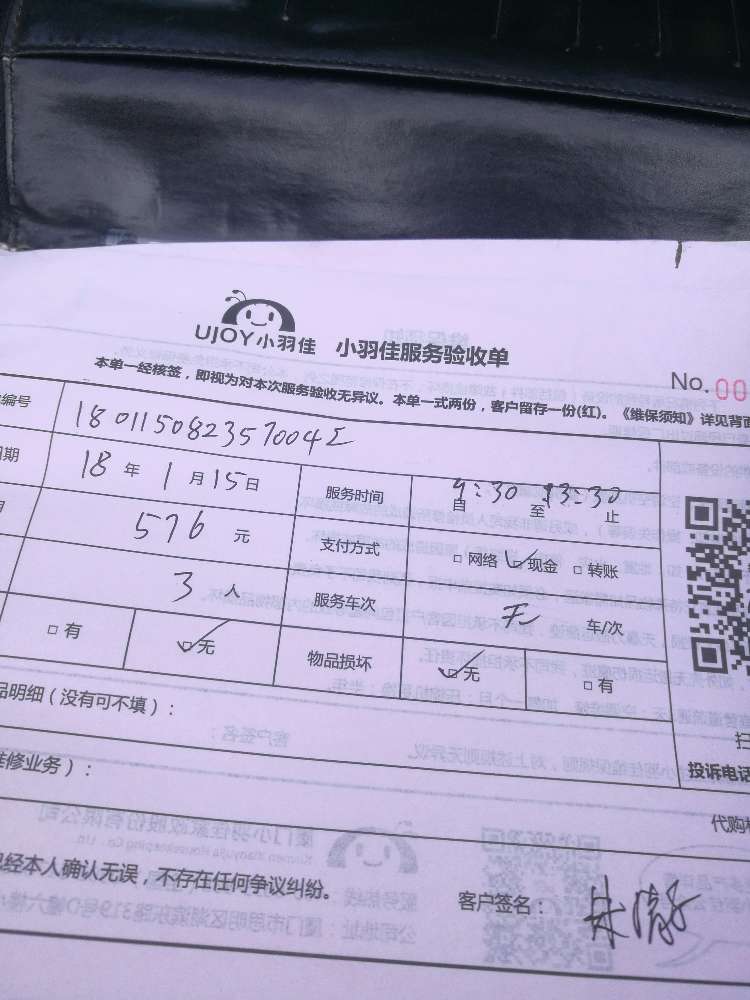 UJOY小羽佳 小羽佳服务验收单
No. 00
本单一经核签，即视为对本次服务验收无异议。本单一式两份，客户留存一份(红)。《维保须知》详见背面
编号 180115082357004
日期 18 年 1 月 15 日 服务时间 自 9:30 至 13:30 止
576 元 支付方式 □ 网络 ☑ 现金 □ 转账
3 人 服务车次 无 车/次
□ 有 ☑ 无 物品损坏 ☑ 无 □ 有
品明细（没有可不填）：
投诉电话
维修业务）：
代购
已经本人确认无误，不存在任何争议纠纷。 客户签名：